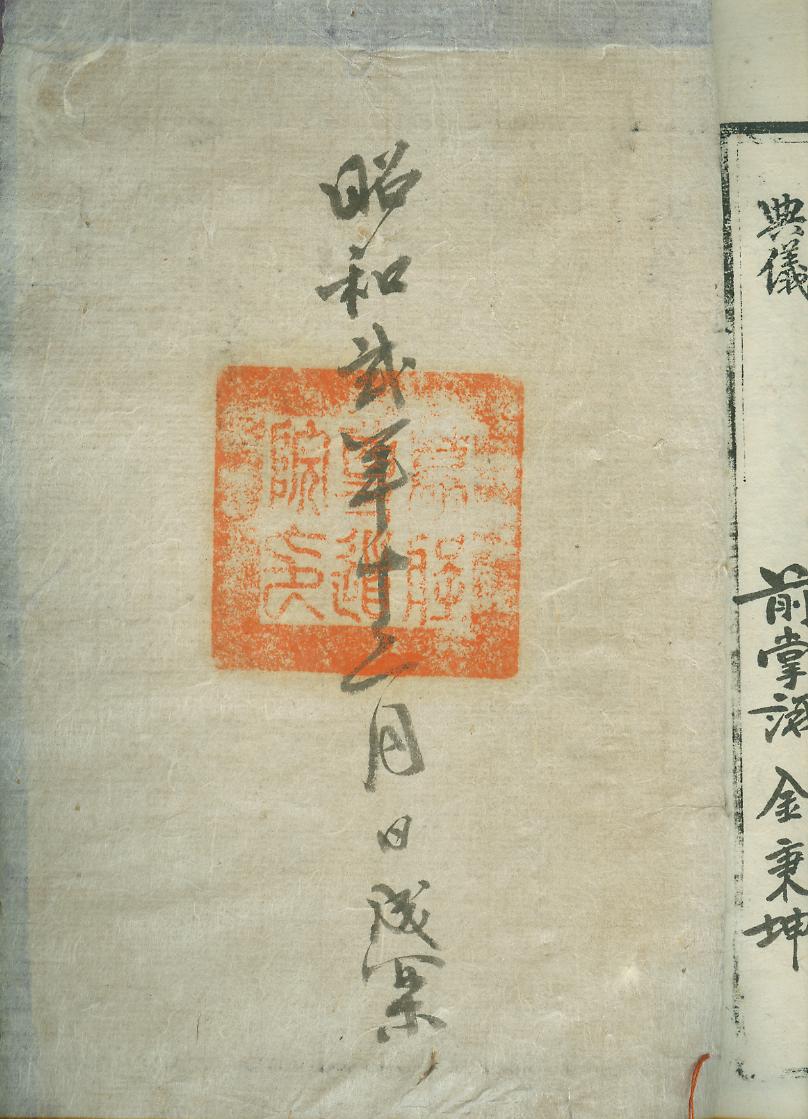 典儀 前掌議 金秉坤
昭和弍年十二月 日 成案
道
院印